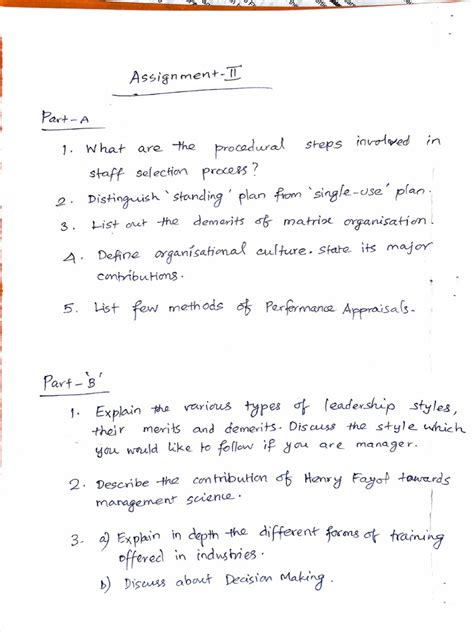 Assignment-II
Part-A
1. What are the procedural steps involved in
staff selection process?
2. Distinguish 'standing' plan from 'single-use' plan.
3. List out the demerits of matrix organisation.
4. Define organisational culture. State its major
contributions.
5. List few methods of Performance Appraisals.
Part-'B'
1. Explain the various types of leadership styles,
their merits and demerits. Discuss the style which
you would like to follow if you are manager.
2. Describe the contribution of Henry Fayol towards
management science.
3. a) Explain in depth the different forms of training
offered in industries.
b) Discuss about Decision Making.